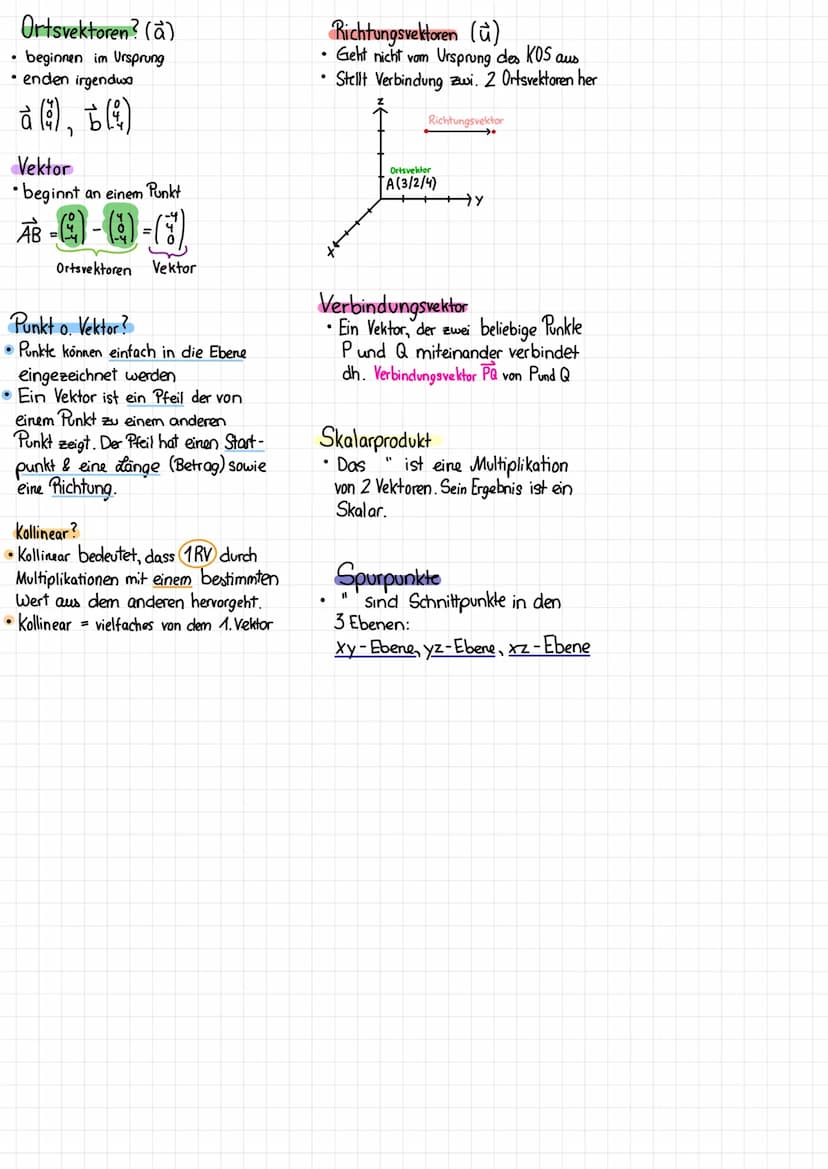 Ortsvektoren? (a⃗)
• beginnen im Ursprung
• enden irgendwo
a⃗ (4 0 4), b⃗ (0 4 -4)
Vektor
• beginnt an einem Punkt
AB⃗ = (0 4 -4) - (4 0 -4) = (-4 4 0)
Ortsvektoren Vektor
Punkt o. Vektor?
• Punkte können einfach in die Ebene
eingezeichnet werden
• Ein Vektor ist ein Pfeil der von
einem Punkt zu einem anderen
Punkt zeigt. Der Pfeil hat einen Start-
punkt & eine Länge (Betrag) sowie
eine Richtung.
Kollinear?
• Kollinear bedeutet, dass 1RV durch
Multiplikationen mit einem bestimmten
Wert aus dem anderen hervorgeht.
• Kollinear = vielfaches von dem 1. Vektor
Richtungsvektoren (u⃗)
• Geht nicht vom Ursprung des KOS aus
• Stellt Verbindung zwi. 2 Ortsvektoren her
z
Richtungsvektor
Ortsvektor
A(3/2/4)
y
x
Verbindungsvektor
• Ein Vektor, der zwei beliebige Punkte
P und Q miteinander verbindet
dh. Verbindungsvektor PQ⃗ von P und Q
Skalarprodukt
• Das " ist eine Multiplikation
von 2 Vektoren. Sein Ergebnis ist ein
Skalar.
Spurpunkte
• " sind Schnittpunkte in den
3 Ebenen:
xy-Ebene, yz-Ebene, xz-Ebene